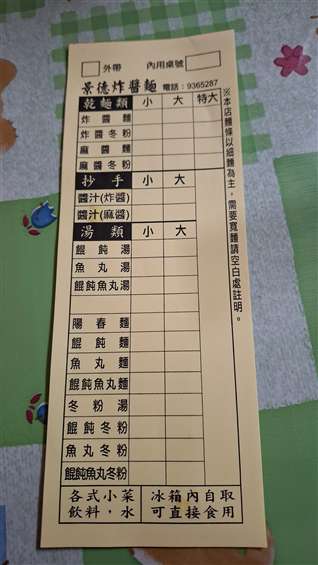 外帶 內用桌號
景德炸醬麵 電話：9365287
乾麵類 小 大 特大
炸醬麵
炸醬冬粉
麻醬麵
麻醬冬粉
抄手 小 大
醬汁(炸醬)
醬汁(麻醬)
湯類 小 大
餛飩湯
魚丸湯
餛飩魚丸湯
陽春麵
餛飩麵
魚丸麵
餛飩魚丸麵
冬粉湯
餛飩冬粉
魚丸冬粉
餛飩魚丸冬粉
各式小菜 冰箱內自取
飲料，水 可直接食用
※本店麵條以細麵為主，需要寬麵請空白處註明。